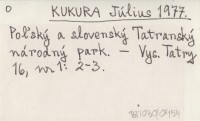 O
KUKURA Július 1977.
Poľský a slovenský Tatranský
národný park. - Vys. Tatry
16, nr 1: 2-3.